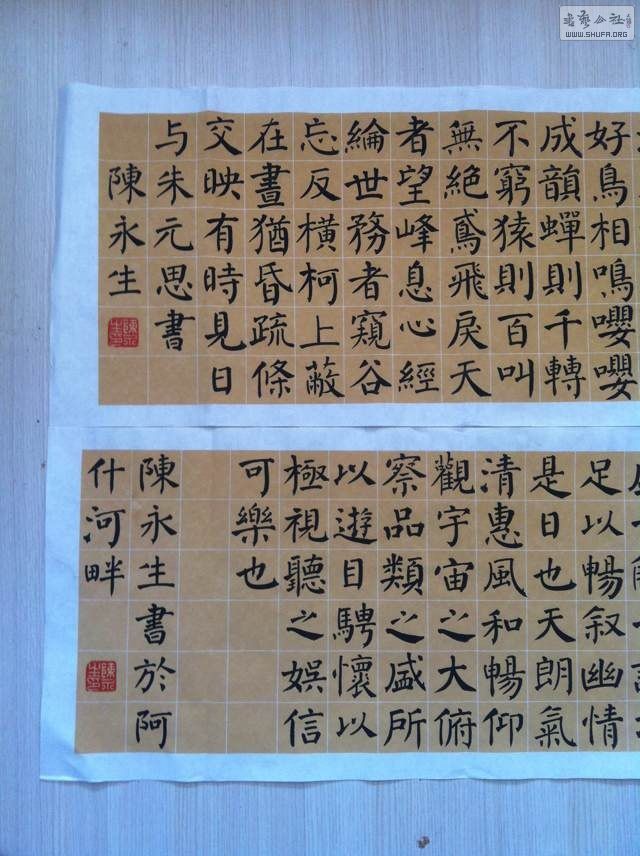 WWW.SHUFA.ORG
好鳥相鳴嚶嚶
成韻蟬則千轉
不窮猿則百叫
無絕鳶飛戾天
者望峰息心經
綸世務者窺谷
忘反橫柯上蔽
在晝猶昏疏條
交映有時見日
与朱元思書
陳永生
足以暢叙幽情
是日也天朗氣
清惠風和暢仰
觀宇宙之大俯
察品類之盛所
以遊目騁懷以
極視聽之娛信
可樂也
陳永生書於阿
什河畔